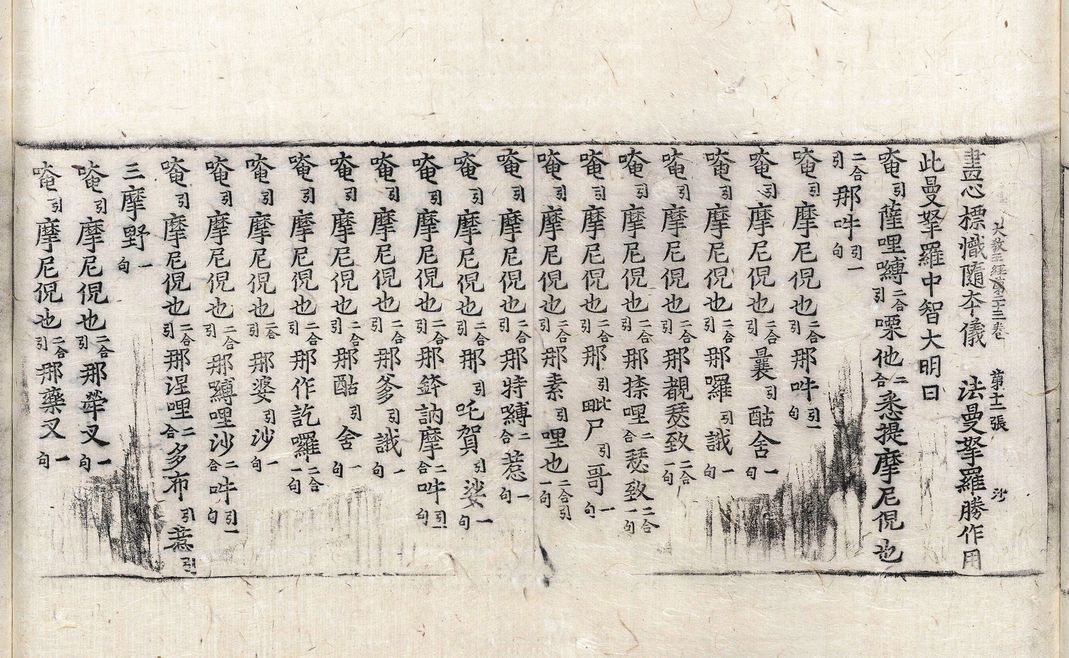 畫心標幟隨本儀　法曼拏羅勝作用
大教王經第二十三卷　第十一張　沙
此曼拏羅中智大明曰
唵引薩哩嚩二合引㗚他二合悉提摩尼儞也
二合引那吽引一句
唵引摩尼儞也二合引那吽引一句
唵引摩尼儞也二合引曩引酤舍一句
唵引摩尼儞也二合引那囉引誐一句
唵引摩尼儞也二合引那覩瑟致二合一句
唵引摩尼儞也二合引那捺哩二合瑟致二合一句
唵引摩尼儞也二合引那引毗尸引哥一句
唵引摩尼儞也二合引那素引哩也二合引一句
唵引摩尼儞也二合引那特嚩二合惹一句
唵引摩尼儞也二合引那引吒賀引娑一句
唵引摩尼儞也二合引那鉢訥摩二合吽引一句
唵引摩尼儞也二合引那爹引誐一句
唵引摩尼儞也二合引那酤引舍一句
唵引摩尼儞也二合引那作訖囉二合一句
唵引摩尼儞也二合引那婆引沙一句
唵引摩尼儞也二合引那嚩哩沙二合吽引一句
唵引摩尼儞也二合引那涅哩二合多布引惹引
三摩野一句
唵引摩尼儞也二合引那犖叉一句
唵引摩尼儞也二合引那藥叉一句